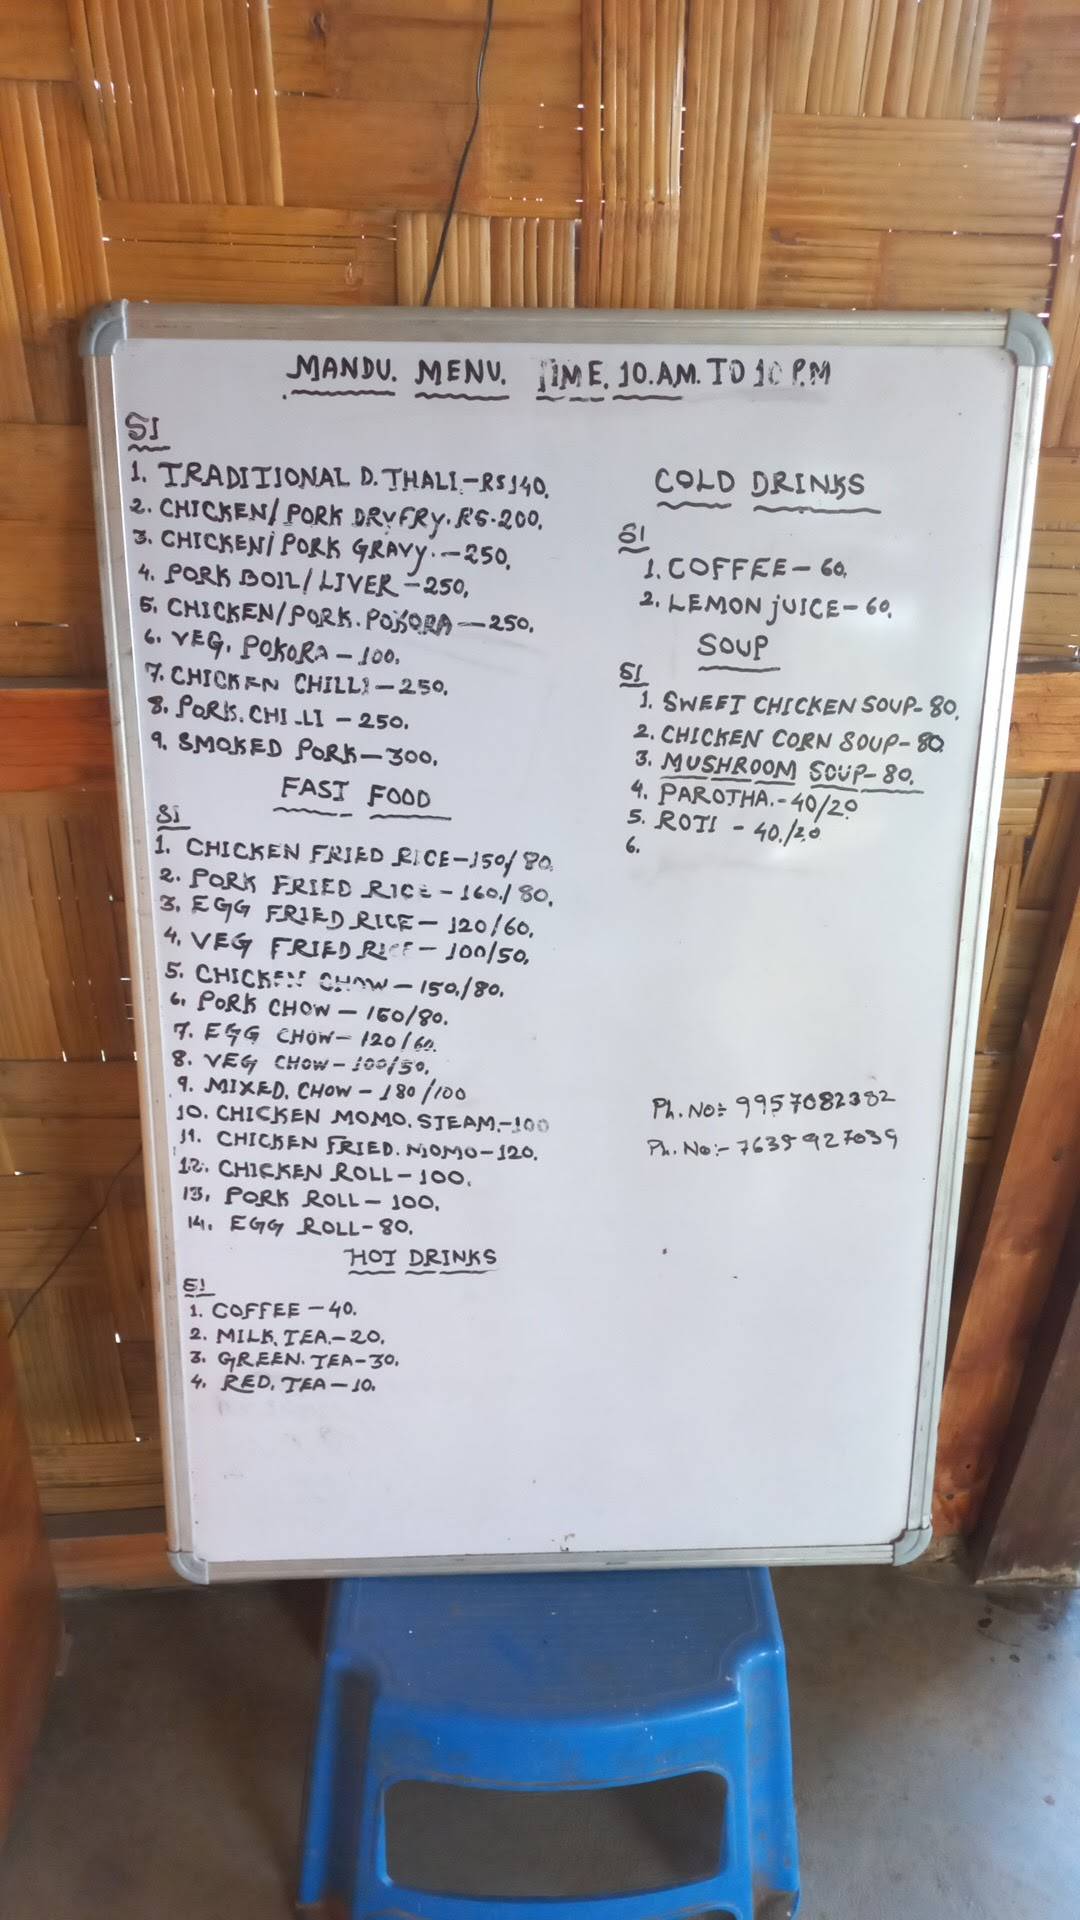 MANDU. MENU. TIME. 10.AM. TO 10 P.M
SI
1. TRADITIONAL D. THALI.-RS140.
2. CHICKEN/ PORK DRYFRY. RS-200.
3. CHICKEN/ PORK GRAVY.-250.
4. PORK BOIL/LIVER-250.
5. CHICKEN/PORK. POKORA-250.
6. VEG. POKORA-100.
7. CHICKEN CHILLI-250.
8. PORK. CHI LI -250.
9. SMOKED PORK-300.
FAST FOOD
SI
1. CHICKEN FRIED RICE-150/80.
2. PORK FRIED RICE-160/80.
3. EGG FRIED RICE-120/60.
4. VEG FRIED RICE-100/50.
5. CHICKEN CHOW-150/80.
6. PORK CHOW-160/80.
7. EGG CHOW-120/60.
8. VEG CHOW-100/50.
9. MIXED. CHOW-180/100
10. CHICKEN MOMO. STEAM.-100
11. CHICKEN FRIED. MOMO-120.
12. CHICKEN ROLL-100.
13. PORK ROLL-100.
14. EGG ROLL-80.
HOT DRINKS
SI
1. COFFEE-40.
2. MILK. TEA.-20.
3. GREEN. TEA-30.
4. RED. TEA-10.
COLD DRINKS
SI
1. COFFEE-60.
2. LEMON jUICE-60.
SOUP
SI
1. SWEET CHICKEN SOUP-80.
2. CHICKEN CORN SOUP-80
3. MUSHROOM SOUP-80.
4. PAROTHA.-40/20.
5. ROTI - 40./20
6.
Ph. No:- 9957082382
Ph. No:-